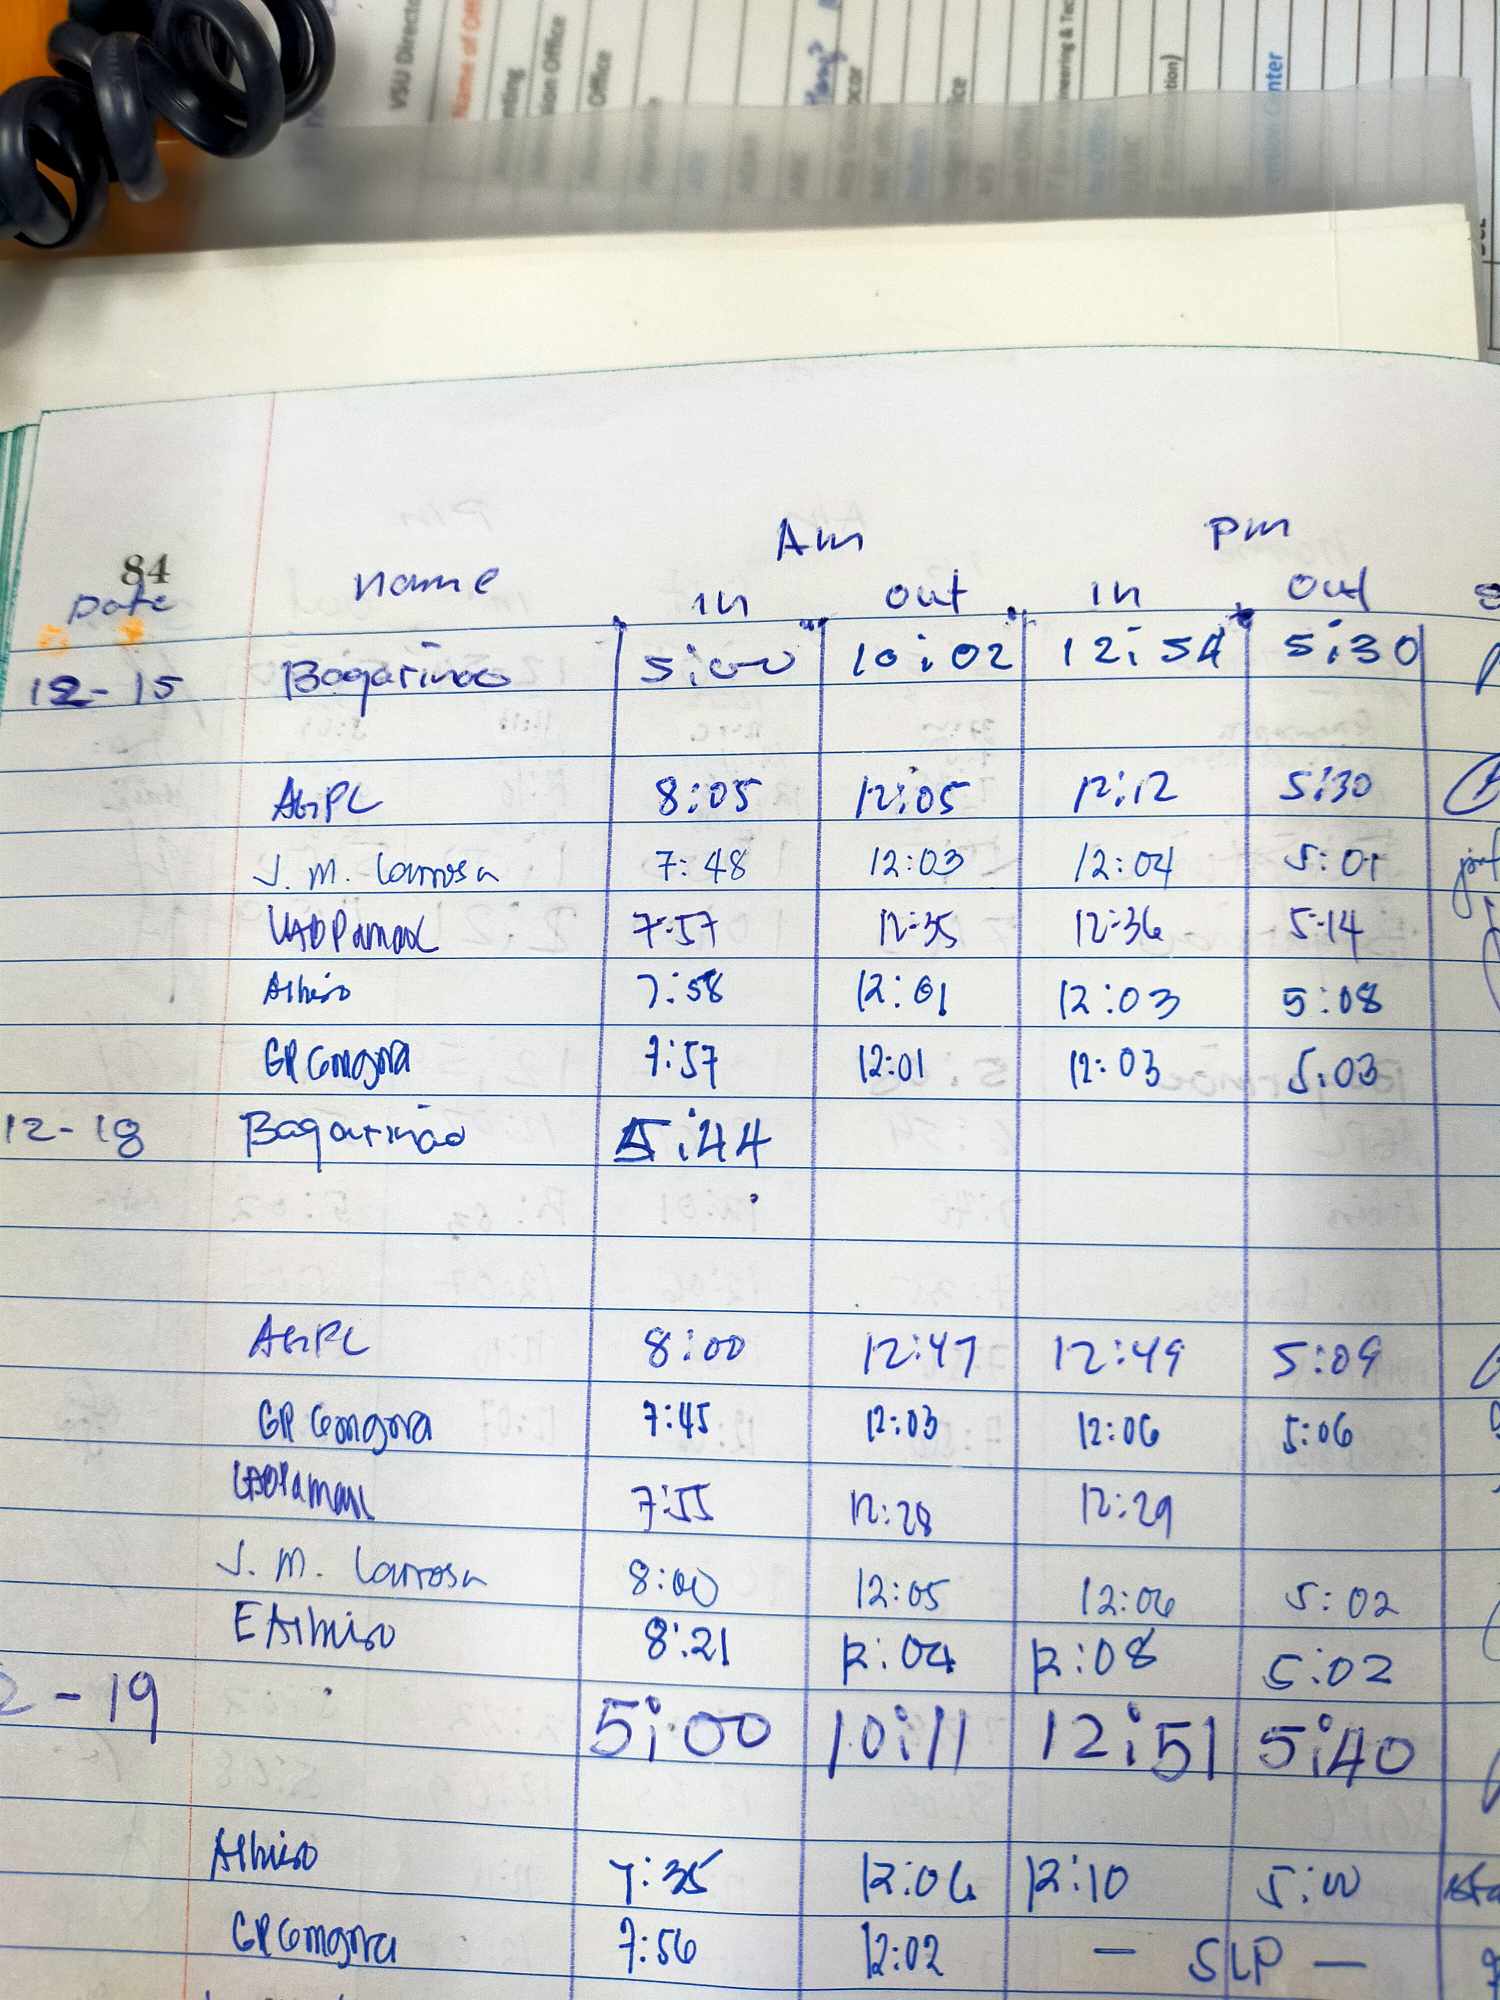 VSU Directo
Name of Off
nting
sion Office
Office
ocar
ice
neering & Tec
tion)
enter
Am pm
84
Date name in out in out
12-15 Bagarinao 5:00 10:02 12:54 5:30
AGPL 8:05 12:05 12:12 5:30
J. M. Larrosa 7:48 12:03 12:04 5:01
7:57 12:35 12:36 5:14
Albiso 7:58 12:01 12:03 5:08
GP Gongora 7:57 12:01 12:03 5:03
12-18 Bagarinao 5:44
AGPL 8:00 12:47 12:49 5:09
GP Gongora 7:45 12:03 12:06 5:06
7:55 12:28 12:29
J. M. Larrosa 8:00 12:05 12:06 5:02
E Albiso 8:21 12:04 12:08 5:02
2-19 5:00 10:11 12:51 5:40
Albiso 7:35 12:06 12:10 5:00
GP Gongora 7:56 12:02 — SLP —